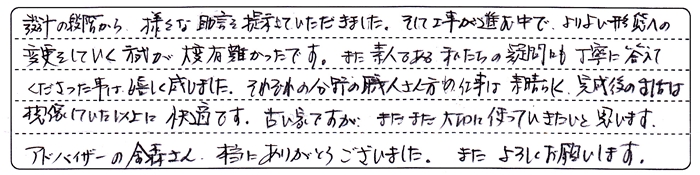 設計の段階から、様々な助言を提示していただきました。そして工事が進む中で、よりよい形態への
変更をしていく方式が大変有難かったです。また素人である私たちの疑問にも丁寧に答えて
くださった事は嬉しく感じました。それぞれの分野の職人さん方の仕事は素晴らしく、完成後の住まいは
想像していた以上に快適です。古い家ですが、まだまだ大切に使っていきたいと思います。
アドバイザーの金森さん、本当にありがとうございました。また よろしくお願いします。